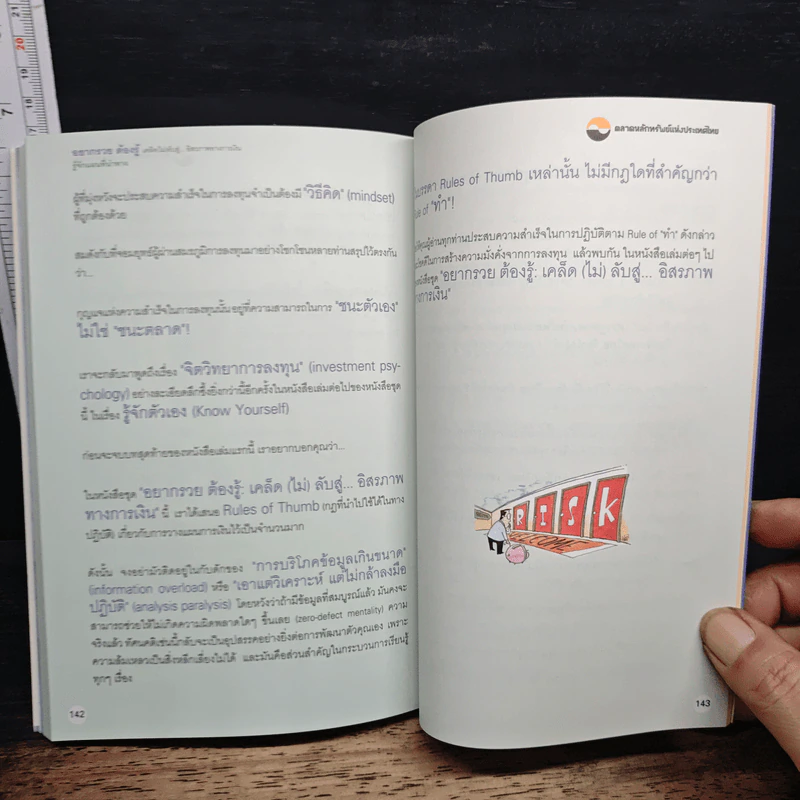 21
20
19
18
7
อยากรวย ต้องรู้ เคล็ด(ไม่)ลับสู่...อิสรภาพทางการเงิน
ผู้ที่มุ่งหวังจะประสบความสำเร็จในการลงทุนจำเป็นต้องมี "วิธีคิด" (mindset)
ที่ถูกต้องด้วย
สมดังกับที่จอมยุทธ์ผู้ผ่านสมรภูมิการลงทุนมาอย่างโชกโชนหลายท่านสรุปไว้ตรงกัน
ว่า...
กุญแจแห่งความสำเร็จในการลงทุนนั้น อยู่ที่ความสามารถในการ "ชนะตัวเอง"
ไม่ใช่ "ชนะตลาด"!
เราจะกลับมาพูดถึงเรื่อง "จิตวิทยาการลงทุน" (investment psy-
chology) อย่างละเอียดลึกซึ้งยิ่งกว่านี้อีกครั้งในหนังสือเล่มต่อไปของหนังสือชุด
นี้ ในเรื่อง รู้จักตัวเอง (Know Yourself)
ก่อนจะจบบทสุดท้ายของหนังสือเล่มแรกนี้ เราอยากบอกคุณว่า...
ในหนังสือชุด "อยากรวย ต้องรู้: เคล็ด (ไม่) ลับสู่... อิสรภาพ
ทางการเงิน" นี้ เราได้เสนอ Rules of Thumb (กฎที่นำไปใช้ได้ในทาง
ปฏิบัติ) เกี่ยวกับการวางแผนการเงินไว้เป็นจำนวนมาก
ดังนั้น จงอย่ามัวติดอยู่ในกับดักของ "การบริโภคข้อมูลเกินขนาด"
(information overload) หรือ "เอาแต่วิเคราะห์ แต่ไม่กล้าลงมือ
ปฏิบัติ" (analysis paralysis) โดยหวังว่าถ้ามีข้อมูลที่สมบูรณ์แล้ว มันคงจะ
สามารถช่วยให้ไม่เกิดความผิดพลาดใดๆ ขึ้นเลย (zero-defect mentality) ความ
จริงแล้ว ทัศนคติเช่นนี้กลับจะเป็นอุปสรรคอย่างยิ่งต่อการพัฒนาตัวคุณเอง เพราะ
ความล้มเหลวเป็นสิ่งหลีกเลี่ยงไม่ได้ และมันคือส่วนสำคัญในกระบวนการเรียนรู้
ทุกๆ เรื่อง
142
ตลาดหลักทรัพย์แห่งประเทศไทย
Rules of Thumb เหล่านั้น ไม่มีกฎใดที่สำคัญกว่า
of "ทำ"!
ให้คุณผู้อ่านทุกท่านประสบความสำเร็จในการปฏิบัติตาม Rule of "ทำ" ดังกล่าว
โชคดีในการสร้างความมั่งคั่งจากการลงทุน แล้วพบกัน ในหนังสือเล่มต่อๆ ไป
หนังสือชุด "อยากรวย ต้องรู้: เคล็ด (ไม่) ลับสู่... อิสรภาพ
ทางการเงิน"
RISK
WELCOME
143